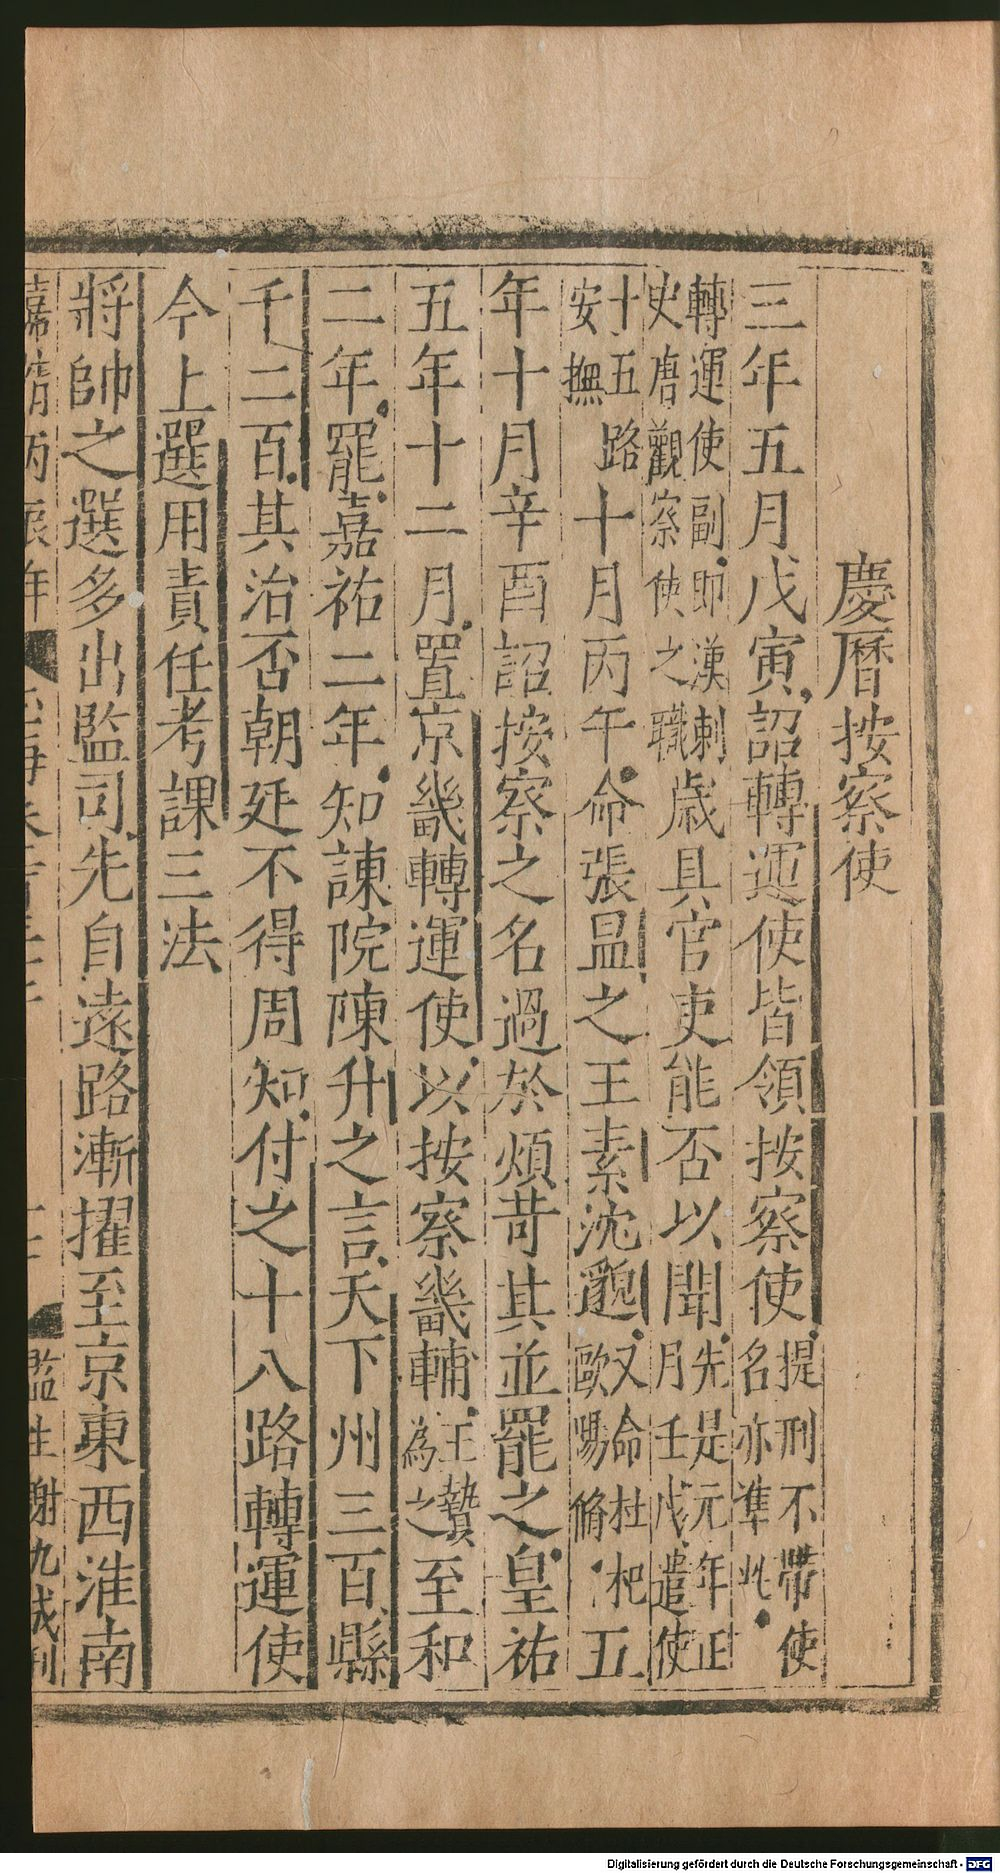 慶曆按察使
三年五月戊寅詔轉運使皆領按察使提刑不帶使名亦準此
轉運使副即漢刺史唐觀察使之職歲具官吏能否以聞先是元年正月壬戌遣使
十五路安撫十月丙午命張昷之王素沈邈又命杜杞歐陽脩五
年十月辛酉詔按察之名過於煩苛其並罷之皇祐
五年十二月置京畿轉運使以按察畿輔王贄為之至和
二年罷嘉祐二年知諫院陳升之言天下州三百縣
千二百其治否朝廷不得周知付之十八路轉運使
今上選用責任考課三法
將帥之選多出監司先自遠路漸擢至京東西淮南
嘉靖丙辰年
監生謝九成刊
Digitalisierung gefördert durch die Deutsche Forschungsgemeinschaft - DFG